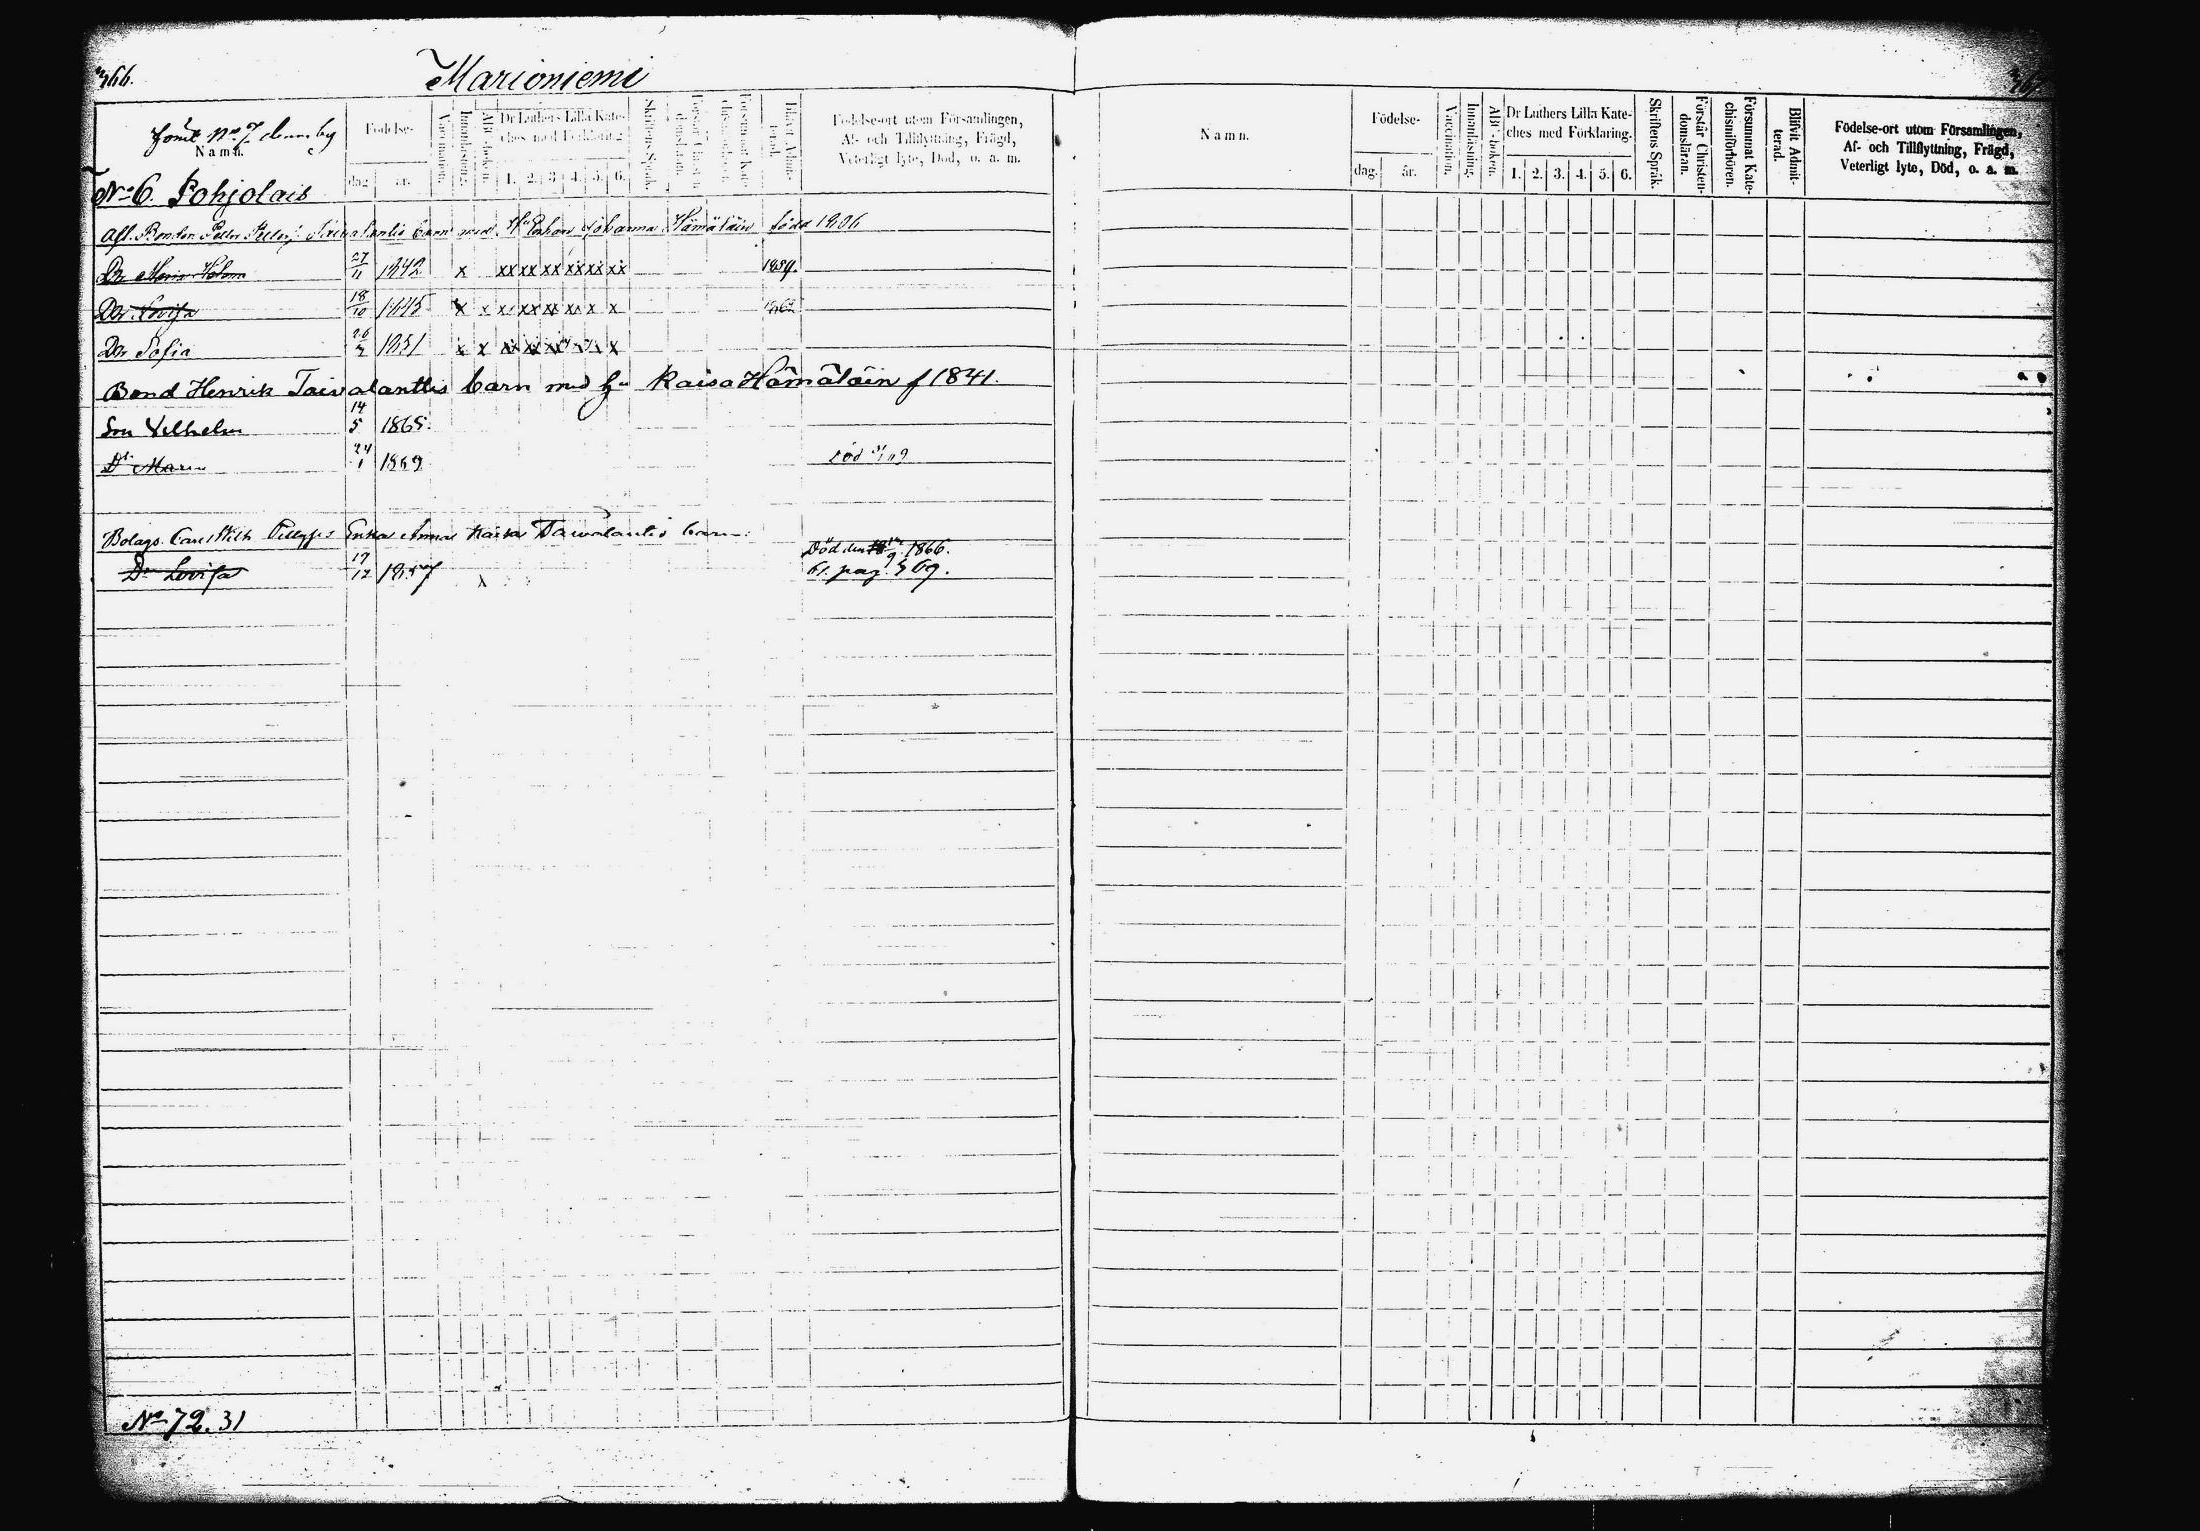 366.
Marioniemi
367.
Namn.
Födelse-
dag
år.
Vaccination.
Innanläsning.
ABC-boken.
Dr Luthers Lilla Kate-
ches med Förklaring.
1. 2. 3. 4. 5. 6.
Skriftens Språk.
Förstår Christen-
domsläran.
Försummat Kate-
chismiförhören.
Blifvit Admit-
terad.
Födelse-ort utom Församlingen,
Af- och Tillflyttning, Frägd,
Veterligt lyte, Död, o. a. m.
No 6. Pohjolais
Afl. Bonden Petter barn med Johanna Hämäläin född 1806
Dr 27/11 1842 x xx xx xx xx xx xx 1859.
Dr Lovisa 18/10 1845 x x x xx xx x x x
Dr Sofia 26/7 1851 x x
Bond Henrik Taivalanttis barn med hu Kaisa Hämäläin f 1841.
Son Vilhelm 14/5 1865.
Dr Maria 24/1 1869 död
Bolags. Carl Wilh Enka Anna Kaisa Taivalantis barn.
Dr Lovisa 19/12 1857 x
Död den 9. 1866.
61. pag. 369.
No 72. 31
Namn.
Födelse-
dag.
år.
Vaccination.
Innanläsning.
ABC-boken.
Dr Luthers Lilla Kate-
ches med Förklaring.
1. 2. 3. 4. 5. 6.
Skriftens Språk.
Förstår Christen-
domsläran.
Försummat Kate-
chismiförhören.
Blifvit Admit-
terad.
Födelse-ort utom Församlingen,
Af- och Tillflyttning, Frägd,
Veterligt lyte, Död, o. a. m.